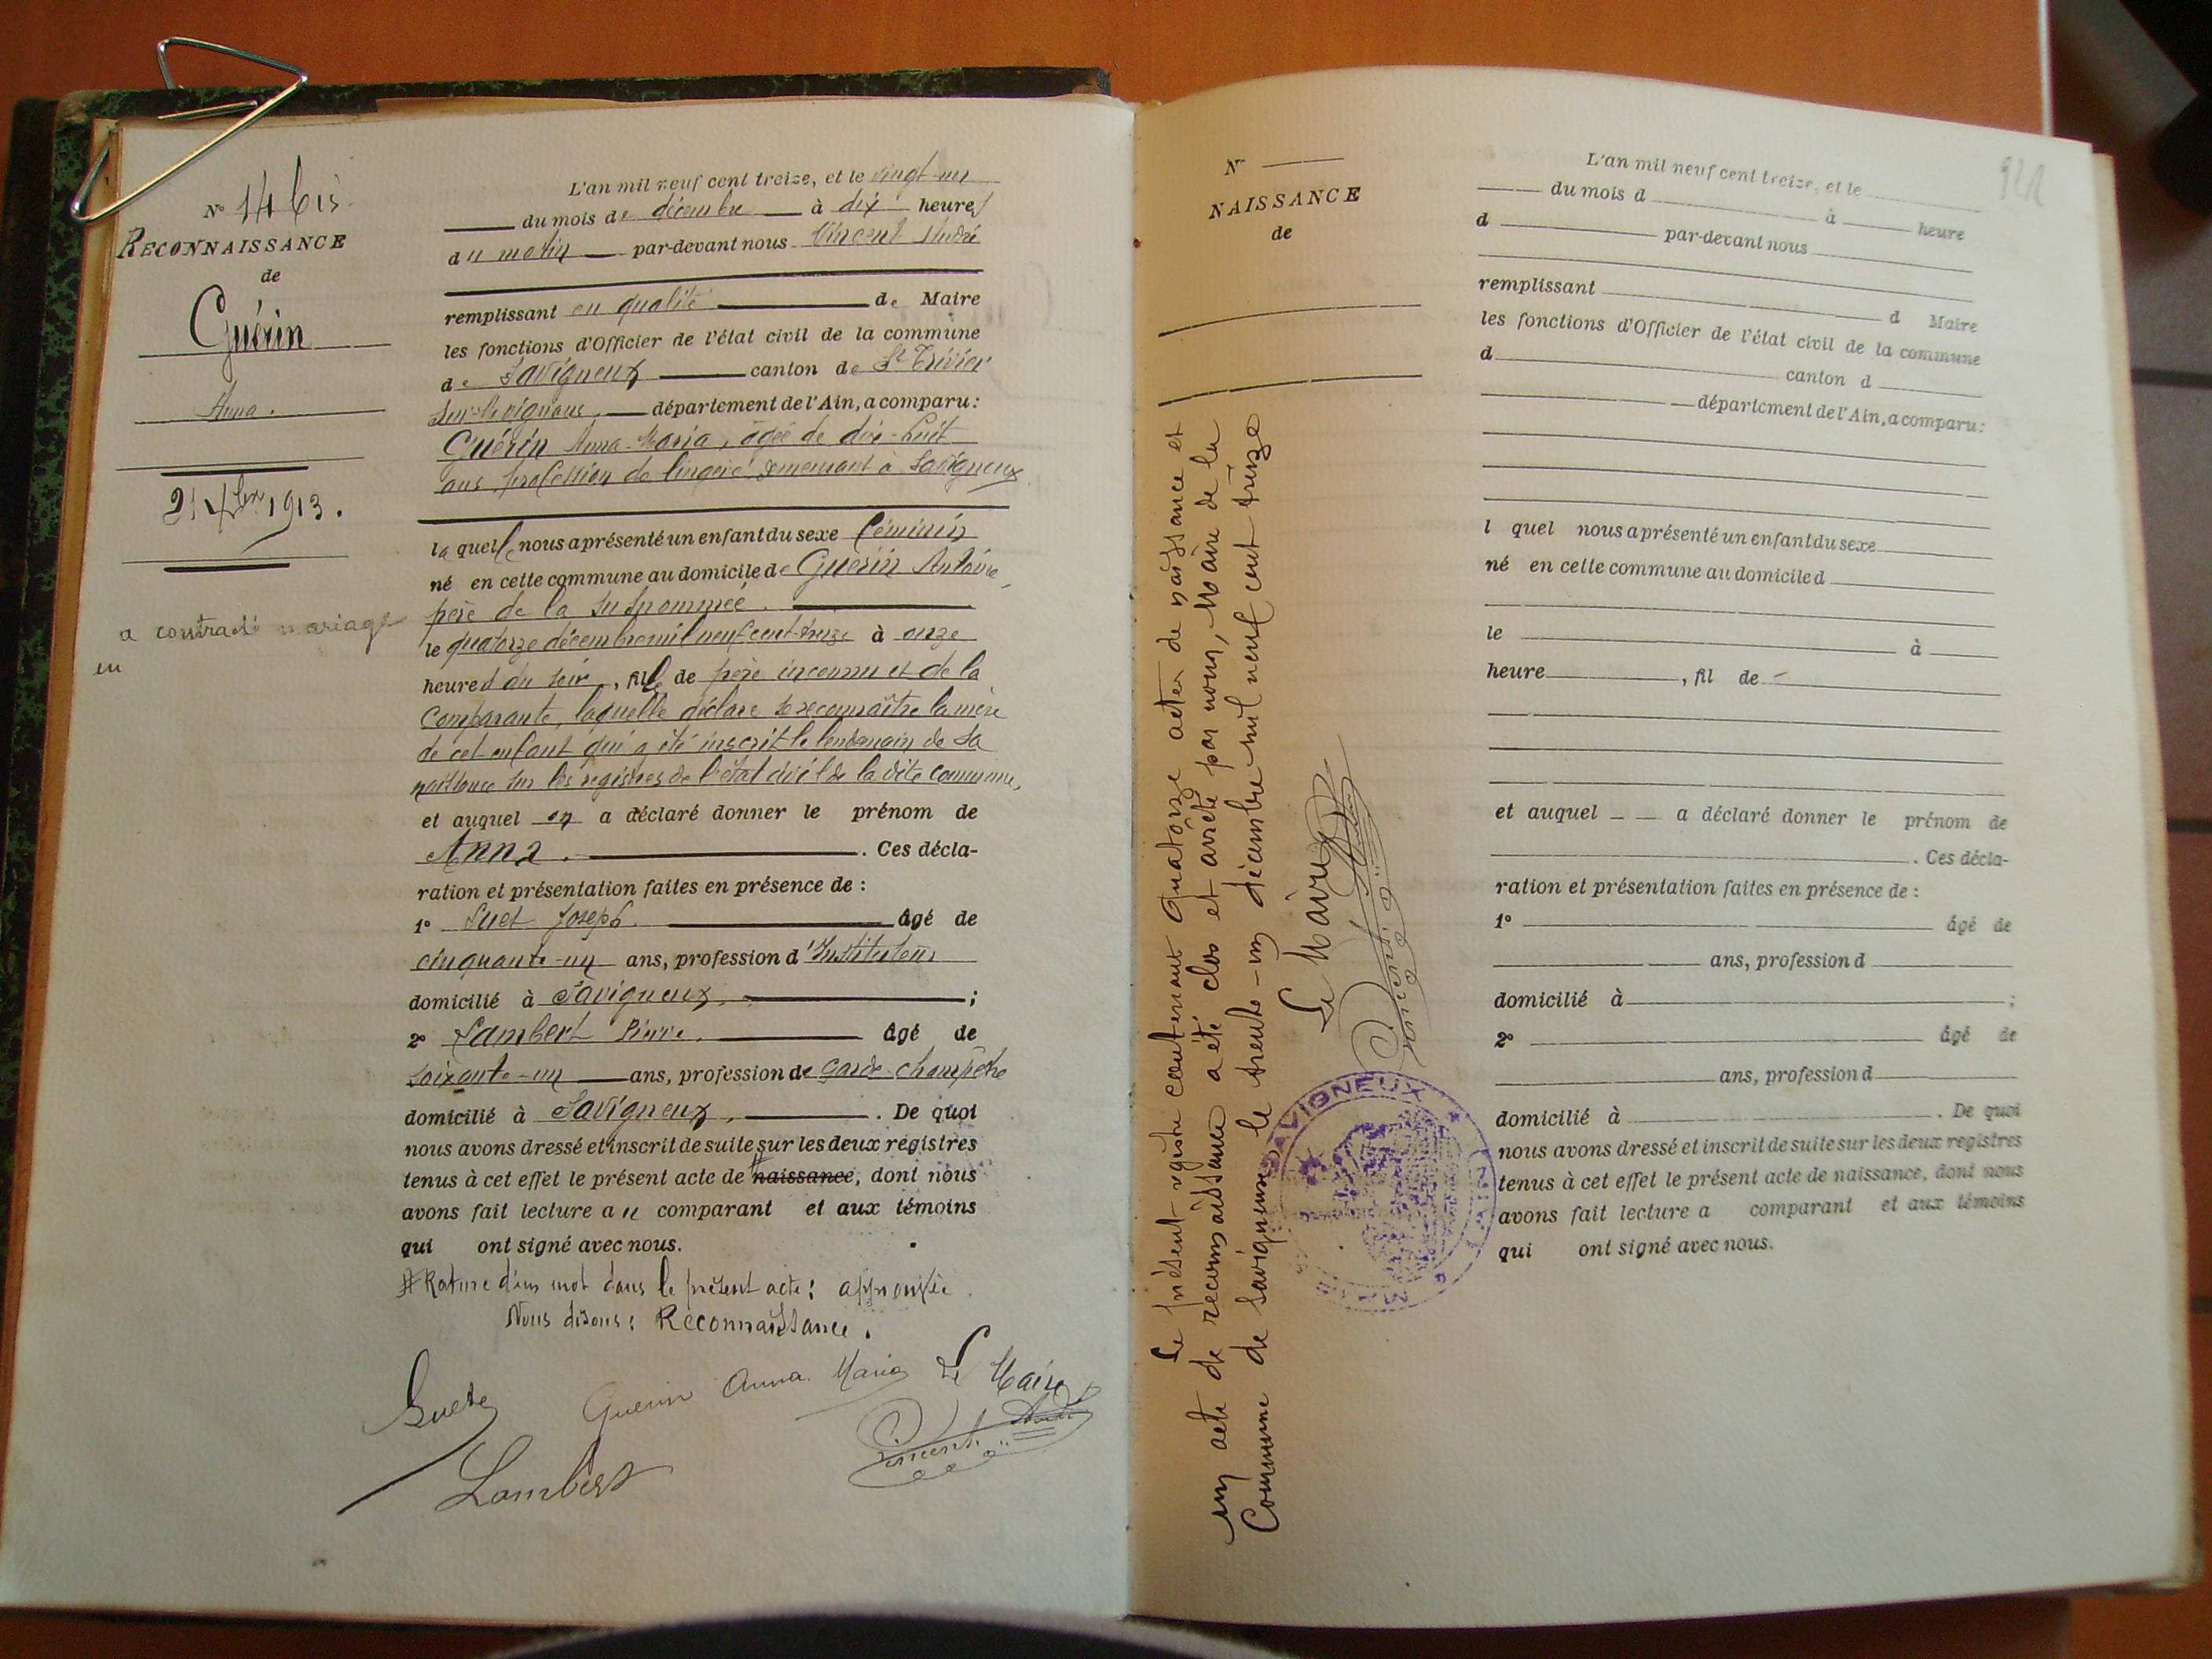 N° 14 bis
RECONNAISSANCE
de
Guérin
Anna.
21 Xbre 1913.
a contracté mariage
en
L'an mil neuf cent treize, et le vingt-un
du mois de décembre à dix heures
du matin par-devant nous Vincent André
remplissant en qualité de Maire
les fonctions d'Officier de l'état civil de la commune
de Savigneux canton de St Trivier
sur-Moignans département de l'Ain, a comparu :
Guérin Anna-Maria, âgée de dix-huit
ans, profession de lingère demeurant à Savigneux
laquelle nous a présenté un enfant du sexe féminin
né en cette commune au domicile de Guérin Antoine,
père de la susnommée.
le quatorze décembre mil neuf cent treize à onze
heures du soir, fille de père inconnu et de la
comparante, laquelle déclare se reconnaître la mère
de cet enfant qui a été inscrit le lendemain de sa
naissance sur les registres de l'état civil de la dite commune,
et auquel on a déclaré donner le prénom de
Anna. . Ces décla-
ration et présentation faites en présence de :
1° Suet Joseph. âgé de
cinquante-un ans, profession d'Instituteur
domicilié à Savigneux, ;
2° Lambert Pierre. âgé de
soixante-un ans, profession de garde-champêtre
domicilié à Savigneux, . De quoi
nous avons dressé et inscrit de suite sur les deux registres
tenus à cet effet le présent acte de # naissance, dont nous
avons fait lecture au comparant et aux témoins
qui ont signé avec nous.
# Rature d'un mot dans le présent acte : approuvée.
Nous disons : Reconnaissance.
Suet
Guerin Anna Maria
Le Maire
Vincent André
Lambert
N°
NAISSANCE
de
Le présent registre contenant quatorze actes de naissance et
un acte de reconnaissance a été clos et arrêté par nous, Maire de la
Commune de Savigneux le trente-un décembre mil neuf cent treize
Le Maire
Vincent André
SAVIGNEUX
L'an mil neuf cent treize, et le
du mois d à heure
d par-devant nous
remplissant d Maire
les fonctions d'Officier de l'état civil de la commune
d canton d
département de l'Ain, a comparu :
l quel nous a présenté un enfant du sexe
né en cette commune au domicile d
le à
heure , fil de
et auquel a déclaré donner le prénom de
. Ces décla-
ration et présentation faites en présence de :
1° âgé de
ans, profession d
domicilié à ;
2° âgé de
ans, profession d
domicilié à . De quoi
nous avons dressé et inscrit de suite sur les deux registres
tenus à cet effet le présent acte de naissance, dont nous
avons fait lecture a comparant et aux témoins
qui ont signé avec nous.